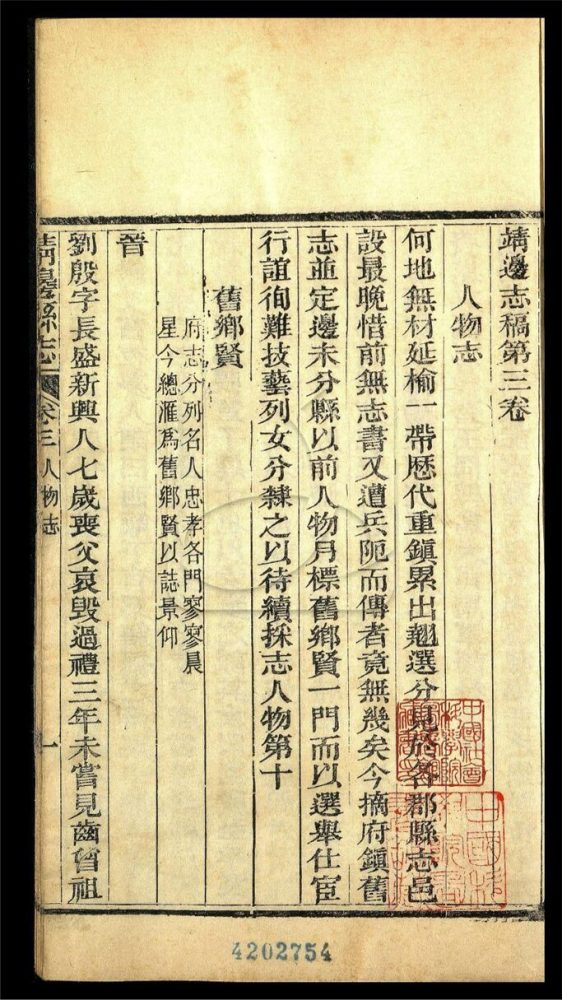 靖邊志稿第三卷
人物志
何地無材延榆一帶歷代重鎮累出翹選分見於各郡縣志邑
設最晚惜前無志書又遭兵阨而傳者竟無幾矣今摘府鎮舊
志並定邊未分縣以前人物另標舊鄉賢一門而以選舉仕宦
行誼徇難技藝列女分隸之以待續採志人物第十
舊鄉賢
府志分列名人忠孝各門寥寥晨
星今總滙爲舊鄉賢以誌景仰
晉
劉殷字長盛新興人七歲喪父哀毀過禮三年未嘗見齒曾祖
靖邊縣志
卷三
人物志
一
4202754